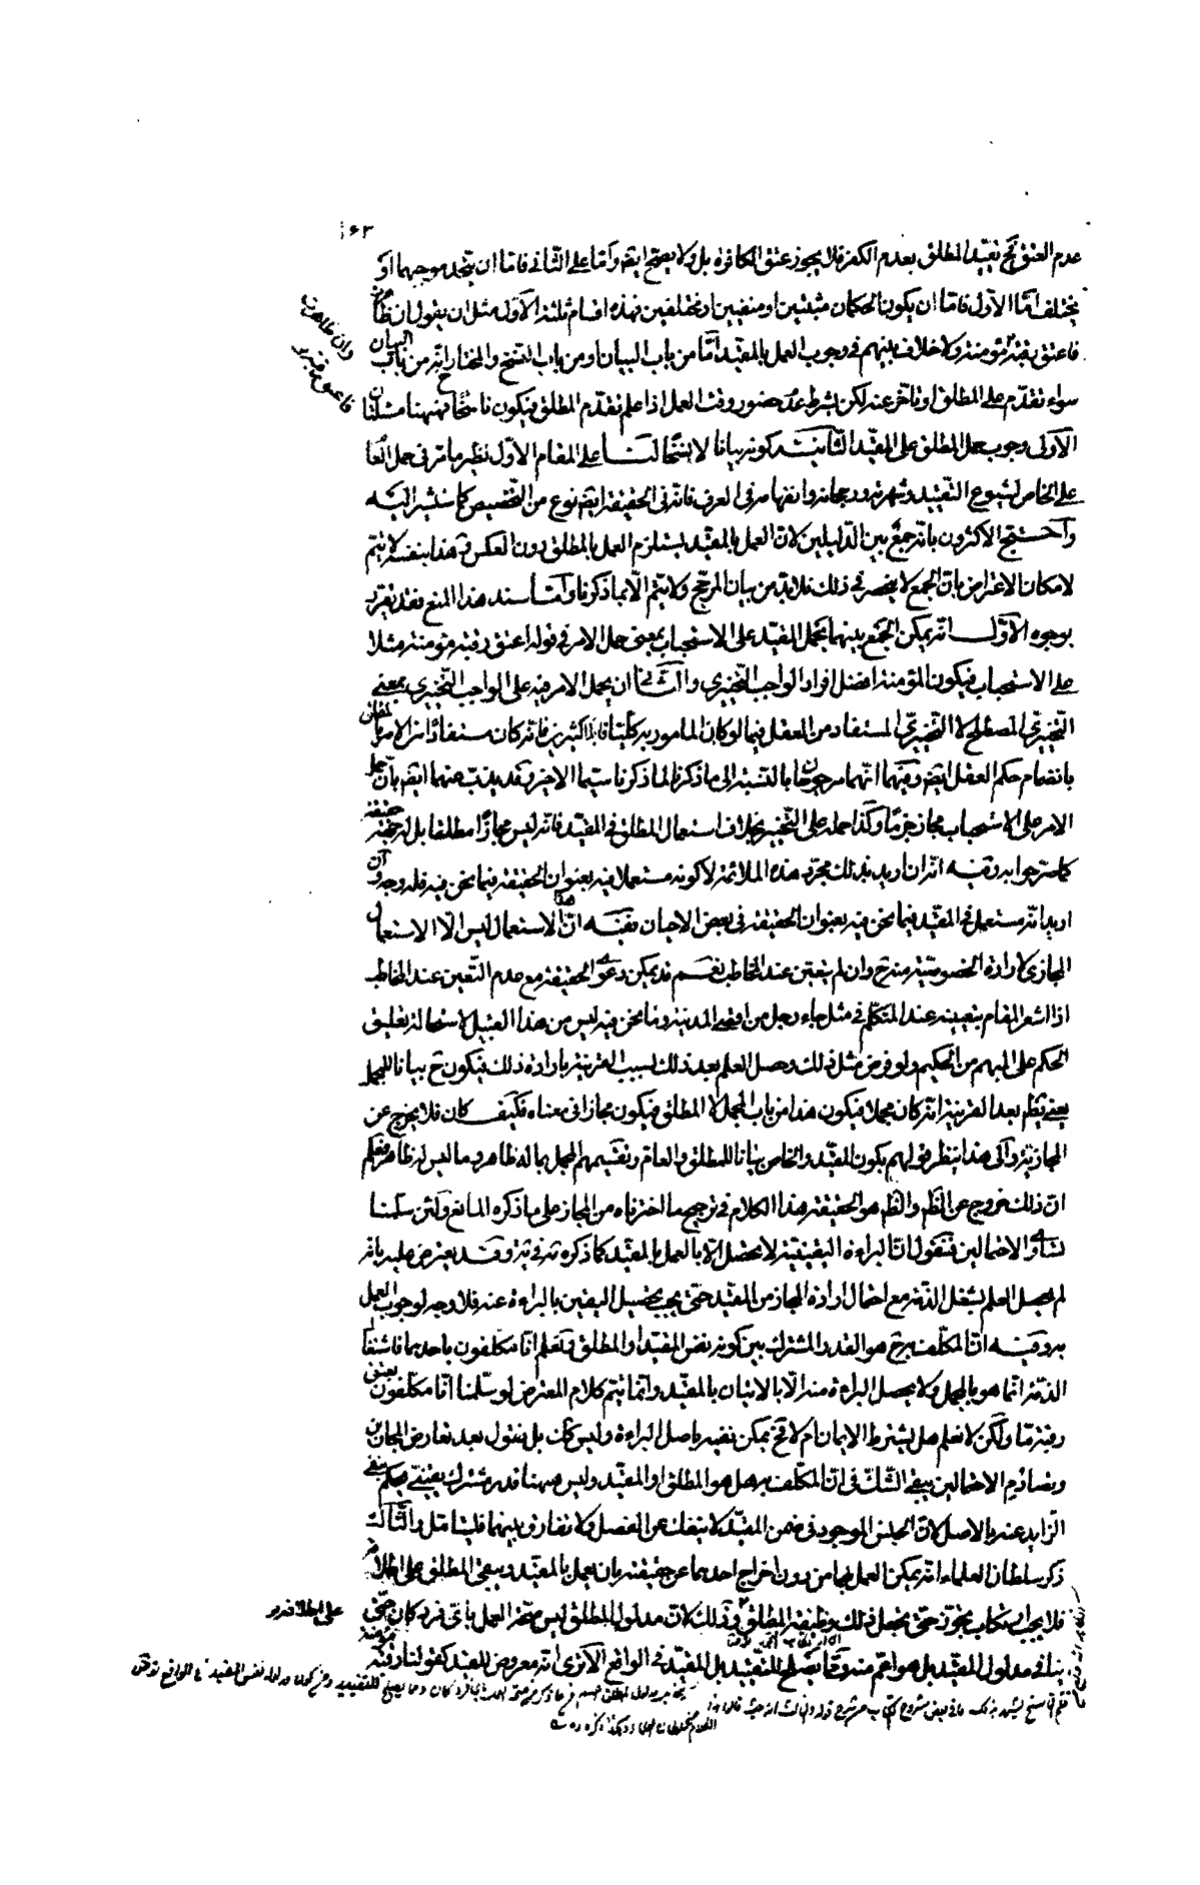 ۱۶۳
عدم العتق فح تقييد المطلق بعدم الكفر فلا يجوز عتق الكافرة بل ولا يصح ايضا واما على الثاني فاما ان يتحد موجبهما او
يختلف اما الاول فاما ان يكون الحكمان مثبتين او منفيين او مختلفين فهذه اقسام ثلثة الاول مثل ان يقول ان ظاهرت
فاعتق رقبة مؤمنة ولا خلاف بينهم في وجوب العمل بالمقيد اما من باب البيان او من باب النسخ والمختار انه من باب البيان
سواء تقدم على المطلق او تاخر عنه لكن بشرط عدم حضور وقت العمل اذا علم تقدم المطلق فيكون ناسخا فههنا مسئلتان
الاولى وجوب حمل المطلق على المقيد الثانية كونه بيانا لا نسخا لنا على المقام الاول نظير ما مر في حمل العام
على الخاص لشيوع التقييد وشهرته ورجحانه وانفهامه في العرف فانه في الحقيقة ايضا نوع من التخصيص كما سنشير اليه
واحتج الاكثرون بانه جمع بين الدليلين لان العمل بالمقيد يستلزم العمل بالمطلق دون العكس وهذا بنفسه لا يتم
لامكان الاعتراض بان الجمع لا ينحصر في ذلك فلا بد من بيان المرجح ولا يتم الا بما ذكرنا واما سند هذا المنع فقد يقرر
بوجوه الاول انه يمكن الجمع بينهما بحمل المقيد على الاستحباب بمعنى حمل الامر في قوله اعتق رقبة مؤمنة مثلا
على الاستحباب فيكون المؤمنة افضل افراد الواجب التخييري والثاني ان يحمل الامر فيه على الواجب التخييري بمعنى
التخيير المصطلح لا التخيير المستفاد من العقل فيما لو كان المامور به كليا قابلا لكثيرين فانه كان مستفادا من الامر بالمطلق
بانضمام حكم العقل ايضا وفيهما انهما مرجوحان بالنسبة الى ما ذكرنا لما ذكرنا سيما الاخير وقد يذب عنهما ايضا بان حمل
الامر على الاستحباب مجاز جزما وكذا حمله على التخيير بخلاف استعمال المطلق في المقيد فانه ليس مجازا مطلقا بل له جهة حقيقة
كما مر جوابه وفيه انه ان اريد بذلك مجرد هذه الملائمة لا كونه مستعملا فيه بعنوان الحقيقة فيما نحن فيه فله وجه وان
اريد انه مستعمل في المقيد فيما نحن فيه بعنوان الحقيقة في بعض الاحيان ففيه ان هذا الاستعمال ليس الا الاستعمال
المجازي لارادة الخصوصية منه ح وان لم يتعين عند المخاطب نعم قد يمكن دعوى الحقيقة مع عدم التعين عند المخاطب
اذا اشعر المقام بتعيينه عند المتكلم في مثل جاء رجل من اقصى المدينة وما نحن فيه ليس من هذا القبيل لاستحالة تعليق
الحكم على المبهم من الحكيم ولو فرض مثل ذلك وحصل العلم بعد ذلك بسبب القرينة بارادة ذلك فيكون ح بيانا للمجمل
يعني يظهر بعد القرينة انه كان مجملا فيكون هذا من باب المجمل لا المطلق فيكون مجازا في معناه فكيف كان فلا يخرج عن
المجازية والى هذا ينظر قولهم بكون المقيد والخاص بيانا للمطلق والعام وتقسيمهم المجمل بما له ظاهر وما ليس له ظاهر فعلم
ان ذلك خروج عن الظاهر والظاهر هو الحقيقة هذا الكلام في ترجيح ما اخترناه من المجاز على ما ذكره المانع ولئن سلمنا
تساوي الاحتمالين فنقول ان البراءة اليقينية لا يحصل الا بالعمل بالمقيد كما ذكره وقد يعترض عليه بانه
لم يحصل العلم بشغل الذمة مع احتمال ارادة المجاز من المقيد حتى يجب تحصيل اليقين بالبراءة عنه فلا وجه لوجوب العمل
به وفيه ان المكلف به ح هو القدر المشترك بين كونه نفس المقيد او المطلق ونعلم انا مكلفون باحدهما فاشتغال
الذمة انما هو بالمجمل ولا يحصل البراءة منه الا بالاتيان بالمقيد وانما يتم كلام المعترض لو سلمنا انا مكلفون بعتق
رقبة ما ولكن لا نعلم هل يشترط الايمان ام لا فح يمكن نفيه باصل البراءة وليس كذلك بل نقول بعد تعارض المجازين
وتصادم الاحتمالين يبقى الشك في ان المكلف به هل هو المطلق او المقيد وليس ههنا قدر مشترك يقيني يحكم بنفي
الزايد عنه بالاصل لان الجنس الموجود في ضمن المقيد لا ينفك عن الفصل ولا تفارق بينهما فليتامل والثالث
ذكر سلطان العلماء انه يمكن العمل بهما من دون اخراج احدهما عن حقيقته بان يعمل بالمقيد ويبقى المطلق على اطلاقه
فلا يجب ارتكاب تجوز حتى يجعل ذلك وظيفة المطلق وذلك لان مدلول المطلق ليس صحة العمل باي فرد كان حتى
ينافي مدلول المقيد بل هو اعم منه ومما يصلح للتقييد بل المقيد في الواقع الا ترى انه معروض للقيد كقولنا رقبة مؤمنة